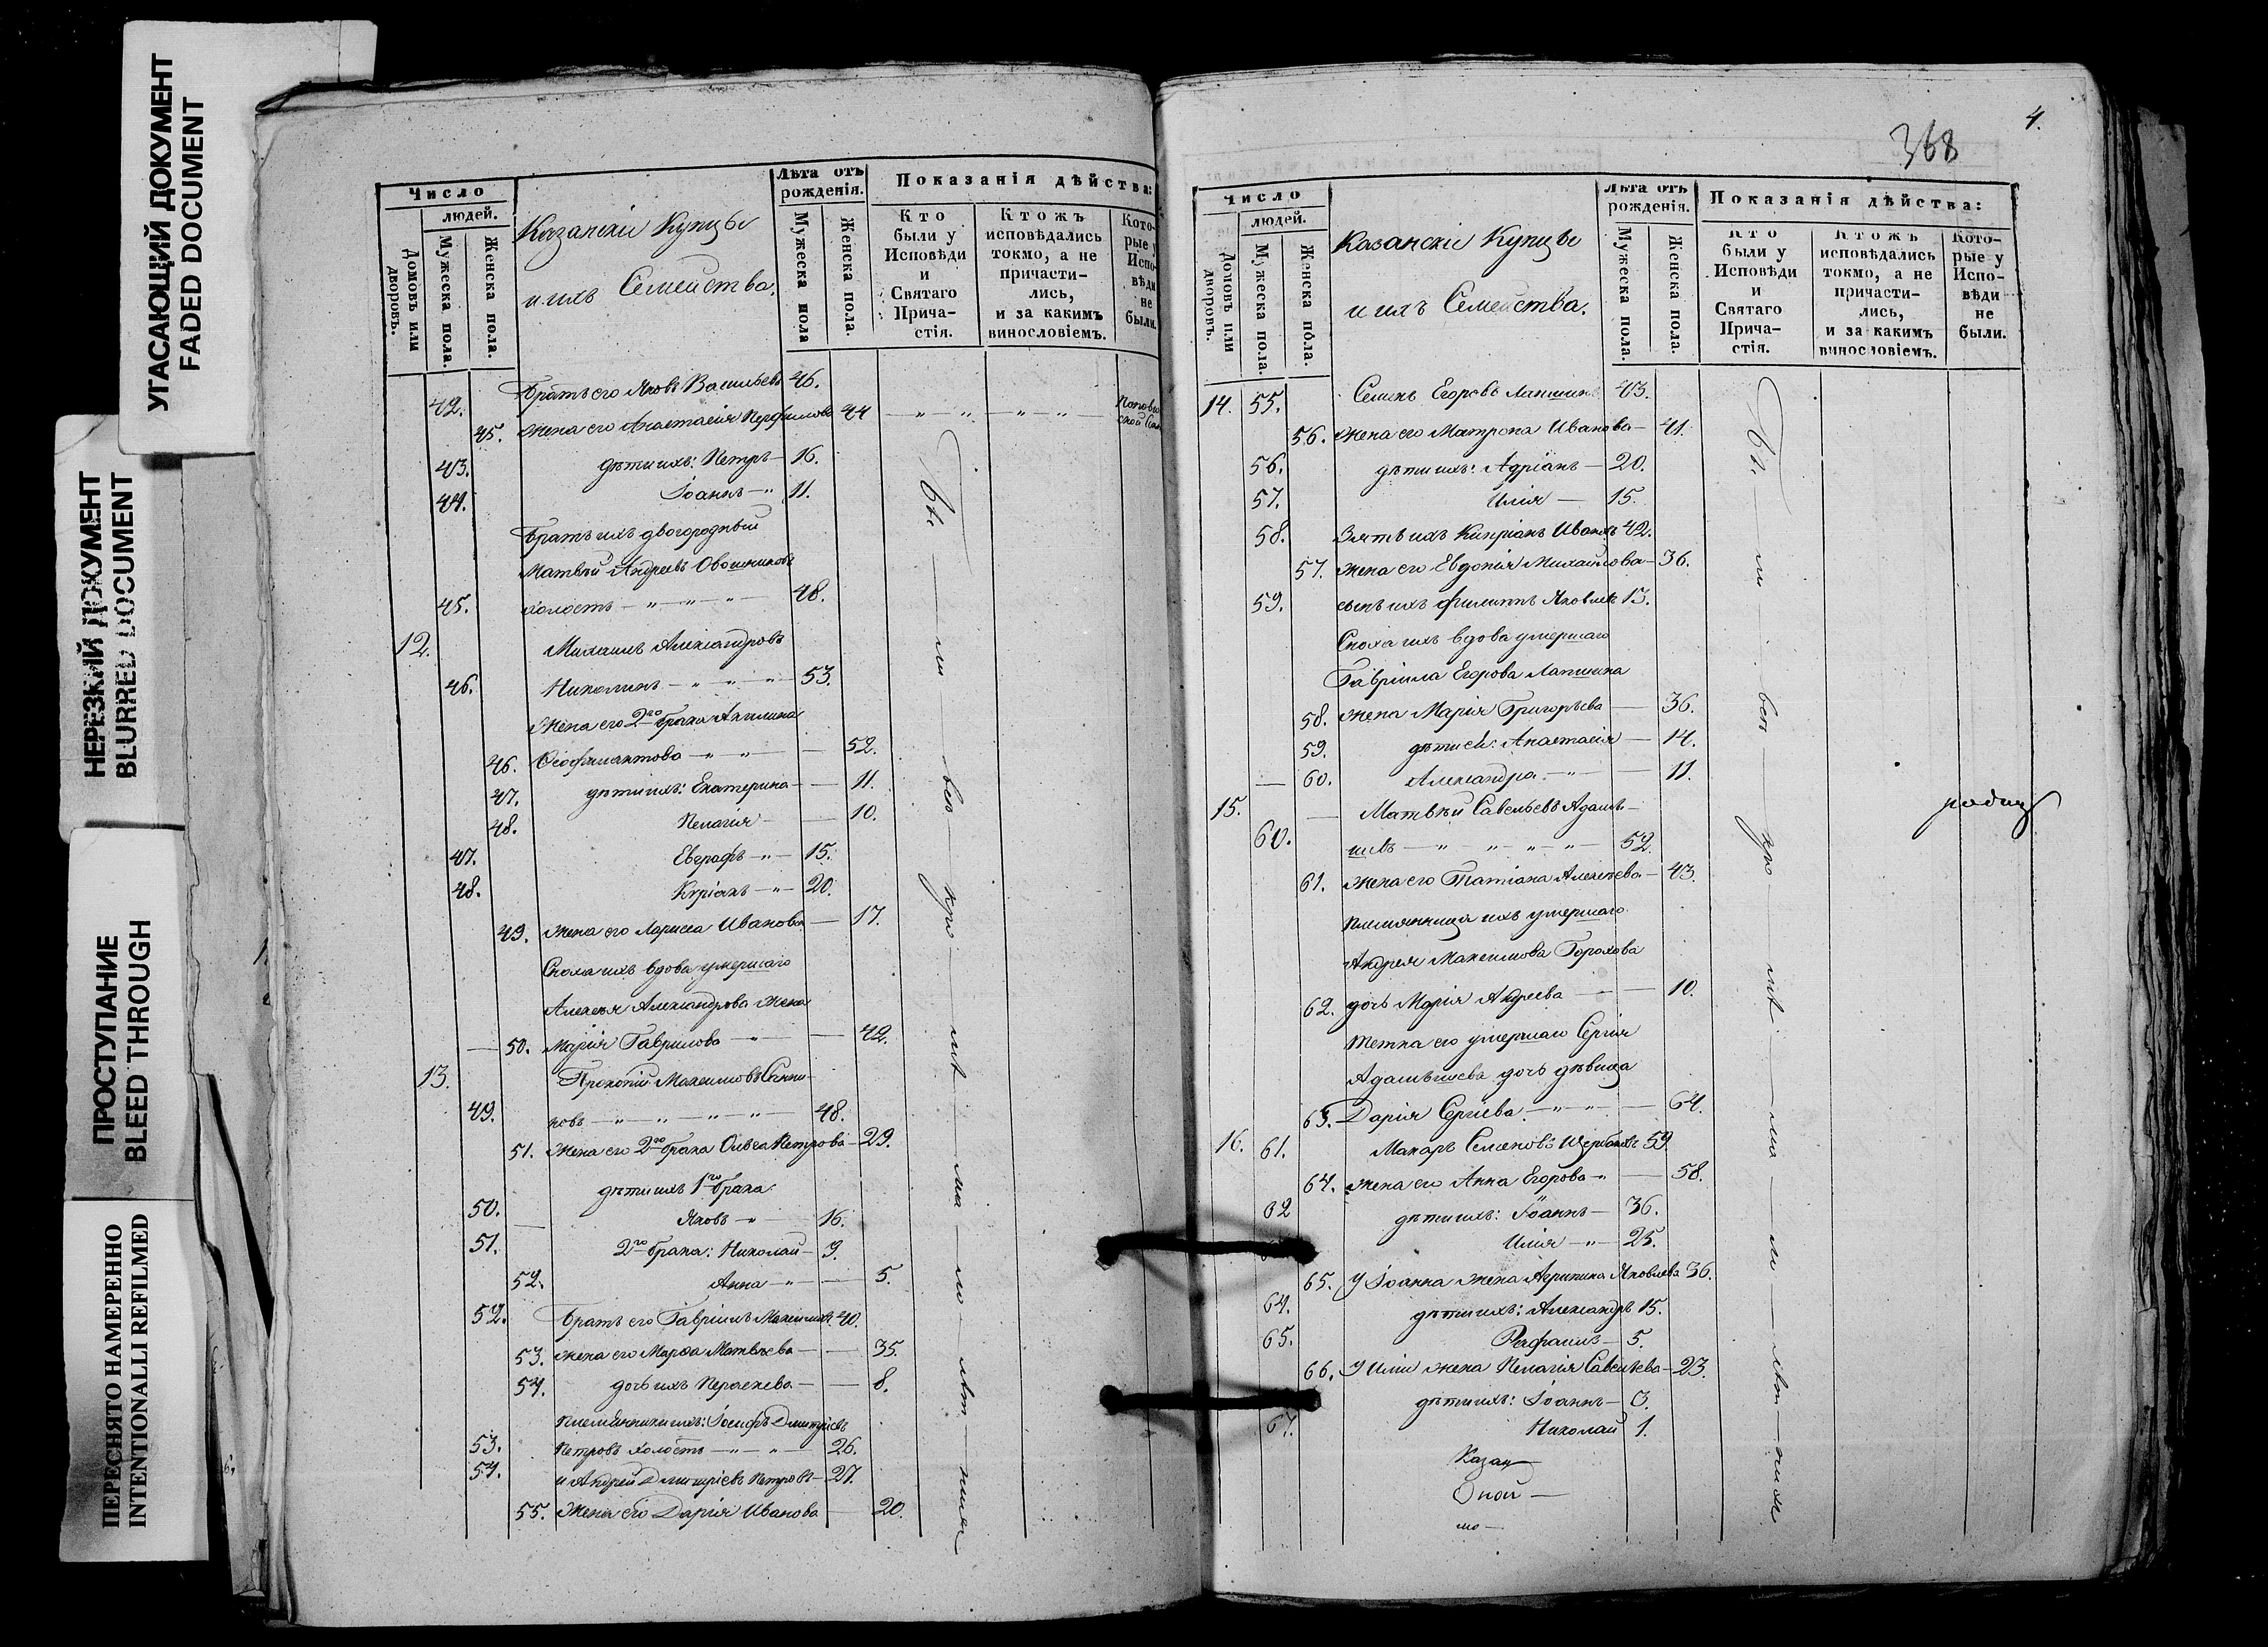 УГАСАЮЩИЙ ДОКУМЕНТ
FADED DOCUMENT
НЕРЕЗКИЙ ДОКУМЕНТ
BLURRED DOCUMENT
ПРОСТУПАНИЕ
BLEED THROUGH
ПЕРЕСНЯТО НАМЕРЕННО
INTENTIONALLI REFILMED
Число
людей.
Домовъ или дворовъ.
Мужеска пола.
Женска пола.
Казанскіе Купцы
и ихъ Семейства.
Лѣта отъ рожденія.
Мужеска пола
Женска пола.
Показанія дѣйства:
Кто были у Исповѣди и Святаго Прича-стія.
Ктожъ исповѣдались токмо, а не причасти-лись, и за какимъ винословіемъ.
Кото-рые у Испо-вѣди не были.
42. Братъ его Яковъ Васильевъ 46.
45. Жена его Анастасія Перфилова 44
43. дѣти ихъ: Петръ 16.
44. Іоаннъ 11.
Братъ ихъ двоюродный
Матвѣй Андреевъ Овошниковъ
45. холостъ 48.
12. Михаилъ Александровъ
46. Николинъ 53.
Жена его 2го брака Акилина
46. Ѳеофилактова 52.
47. дѣти ихъ: Екатерина 11.
48. Пелагія 10.
47. Евграфъ 15.
48. Кѵріакъ 20.
49. Жена его Лариса Иванова 17.
Сноха ихъ вдова умершаго
Алексѣя Александрова жена
50. Марія Гаврилова 42.
13. Прокопій Максимовъ
49. ковъ 48.
51. Жена его 2го брака Ольга Петрова 29.
дѣти ихъ 1го брака
50. Яковъ 16.
51. 2го брака: Николай 9.
52. Анна 5.
52. Братъ его Гавріилъ Максимовъ 40.
53. Жена его Марѳа Матвѣева 35.
54. дочь ихъ Параскева 8.
племянники ихъ: Іосифъ Дмитріевъ
53. Петровъ холостъ 26.
54. и Андрей Дмитріевъ Петровъ 27.
55. Жена его Дарія Иванова 20.
4.
368
Число
людей.
Домовъ или дворовъ.
Мужеска пола.
Женска пола.
Казанскіе Купцы
и ихъ Семейства.
Лѣта отъ рожденія.
Мужеска пола.
Женска пола.
Показанія дѣйства:
Кто были у Исповѣди и Святаго Прича-стія.
Ктожъ исповѣдались токмо, а не причасти-лись, и за какимъ винословіемъ.
Кото-рые у Испо-вѣди не были.
14. 55. Семенъ Егоровъ Лапшинъ 43.
56. Жена его Матрона Иванова 41.
56. дѣти ихъ: Адріанъ 20.
57. Илія 15.
58. Зять ихъ Кипріанъ Ивановъ 42.
57. Жена его Евдокія Михайлова 36.
59. сынъ ихъ Филиппъ Яковлевъ 13.
Сноха ихъ вдова умершаго
Гавріила Егорова Лапшина
58. жена Марія Григорьева 36.
59. дѣти ея: Анастасія 14.
60. Александра 11.
15. Матвѣй Савельевъ Адамъ-
60. 52.
61. Жена его Татіана Алексѣева 43.
Племянница ихъ умершаго
Андрея Максимова Горохова
62. дочь Марія Андреева 10.
Тетка его умершаго Сергія
дочь дѣвица
63. Дарія Сергіева 64.
16. 61. Макаръ Семеновъ Щербаковъ 59.
64. Жена его Анна Егорова 58.
62 дѣти ихъ: Іоаннъ 36.
Илія 25.
65. У Іоанна жена Агрипина Яковлева 36.
64. дѣти ихъ: Александръ 15.
65. Рафаилъ 5.
66. У Иліи жена Пелагія Савельева 23.
дѣти ихъ: Іоаннъ 3.
67. Николай 1.
Казан